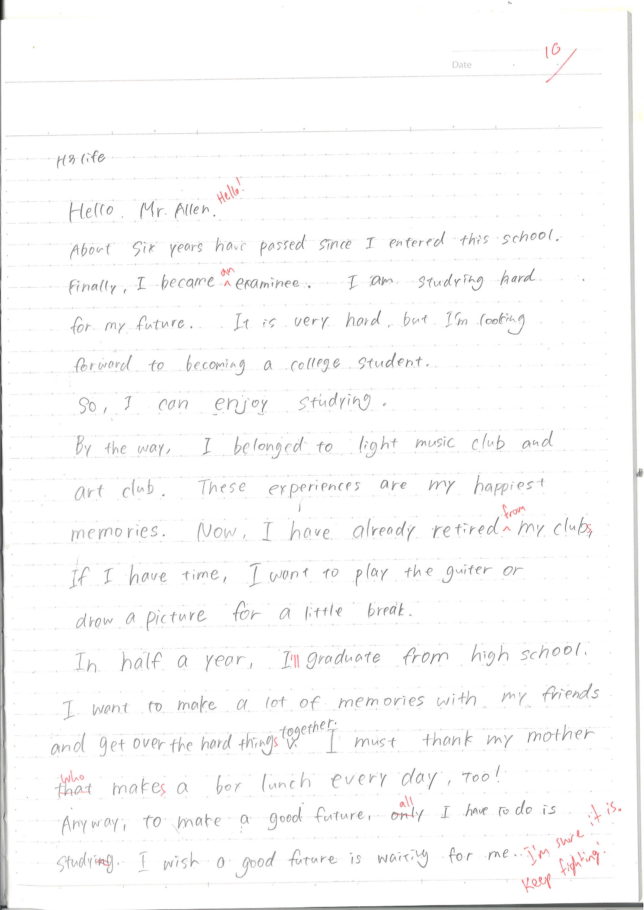 10
Date
H3 life
Hello. Mr. Allen. Hello!
About six years have passed since I entered this school.
Finally, I became an examinee. I am studying hard
for my future. It is very hard, but I'm looking
forward to becoming a college student.
So, I can enjoy studying.
By the way, I belonged to light music club and
art club. These experiences are my happiest
memories. Now, I have already retired from my clubs,
If I have time, I want to play the guiter or
drow a picture for a little break.
In half a year, I'll graduate from high school.
I want to make a lot of memories with my friends
and get over the hard things together. I must thank my mother
who
that makes a box lunch every day, too!
all
Anyway, to make a good future, only I have to do is
studying. I wish a good future is waiting for me.. I'm sure it is.
Keep fighting!